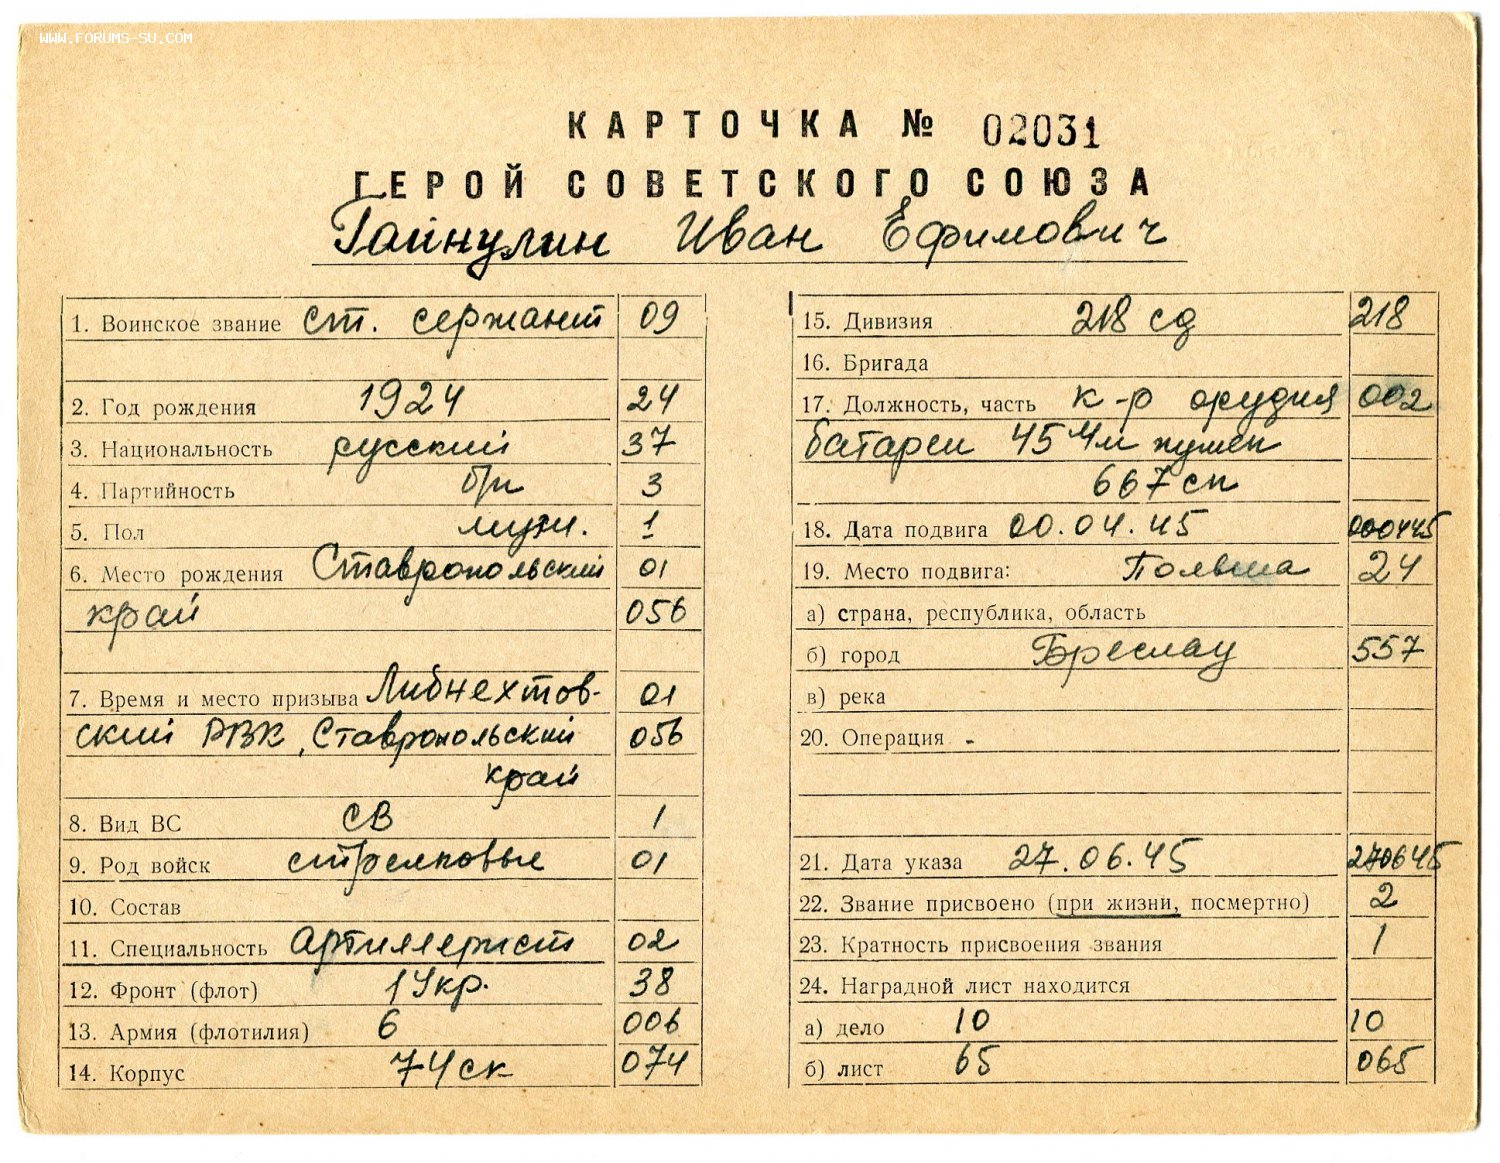 WWW.FORUMS-SU.COM
КАРТОЧКА № 02031
ГЕРОЙ СОВЕТСКОГО СОЮЗА
Гайнулин Иван Ефимович
1. Воинское звание ст. сержант 09
2. Год рождения 1924 24
3. Национальность русский 37
4. Партийность б/п 3
5. Пол муж. 1
6. Место рождения Ставропольский 01
край 056
7. Время и место призыва Либнехтов- 01
ский РВК, Ставропольский 056
край
8. Вид ВС СВ 1
9. Род войск стрелковые 01
10. Состав
11. Специальность Артиллерист 02
12. Фронт (флот) 1 Укр. 38
13. Армия (флотилия) 6 006
14. Корпус 74 ск 074
15. Дивизия 218 сд 218
16. Бригада
17. Должность, часть к-р орудия 002
батареи 45 мм пушек
667 сп
18. Дата подвига 00.04.45 000445
19. Место подвига: Польша 24
а) страна, республика, область
б) город Бреслау 557
в) река
20. Операция -
21. Дата указа 27.06.45 270645
22. Звание присвоено (при жизни, посмертно) 2
23. Кратность присвоения звания 1
24. Наградной лист находится
а) дело 10 10
б) лист 65 065